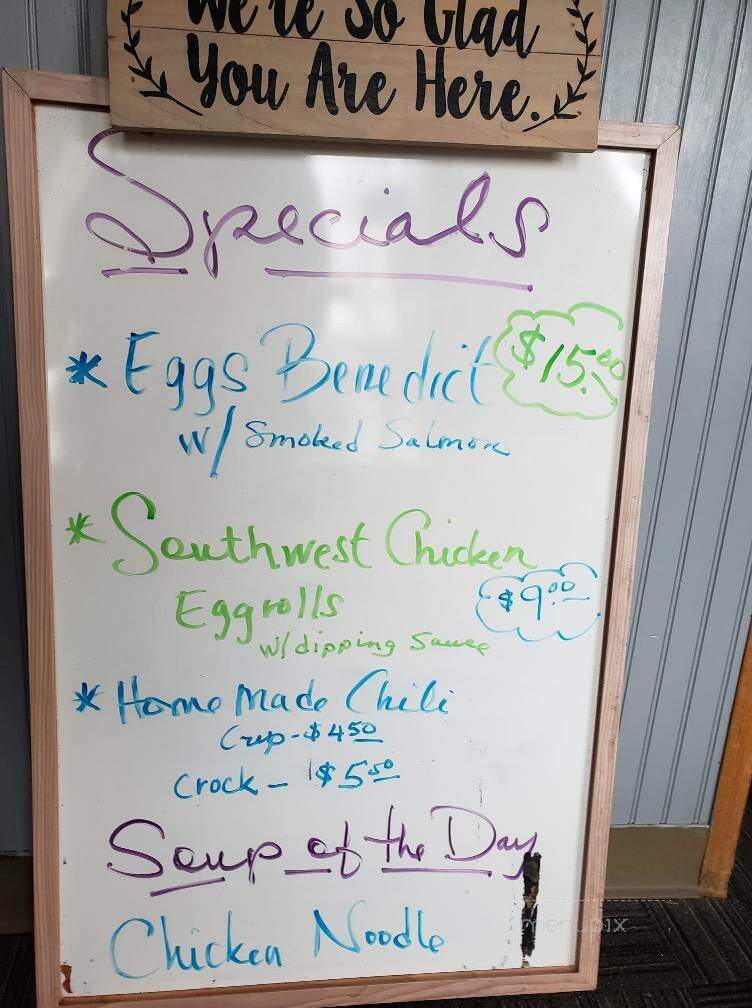 We're So Glad
You Are Here.
Specials
* Eggs Benedict $15.00
w/ Smoked Salmon
* Southwest Chicken
Eggrolls $9.00
w/dipping Sauce
* Home Made Chili
Cup - $4 50
Crock - $5 50
Soup of the Day
Chicken Noodle
menupix